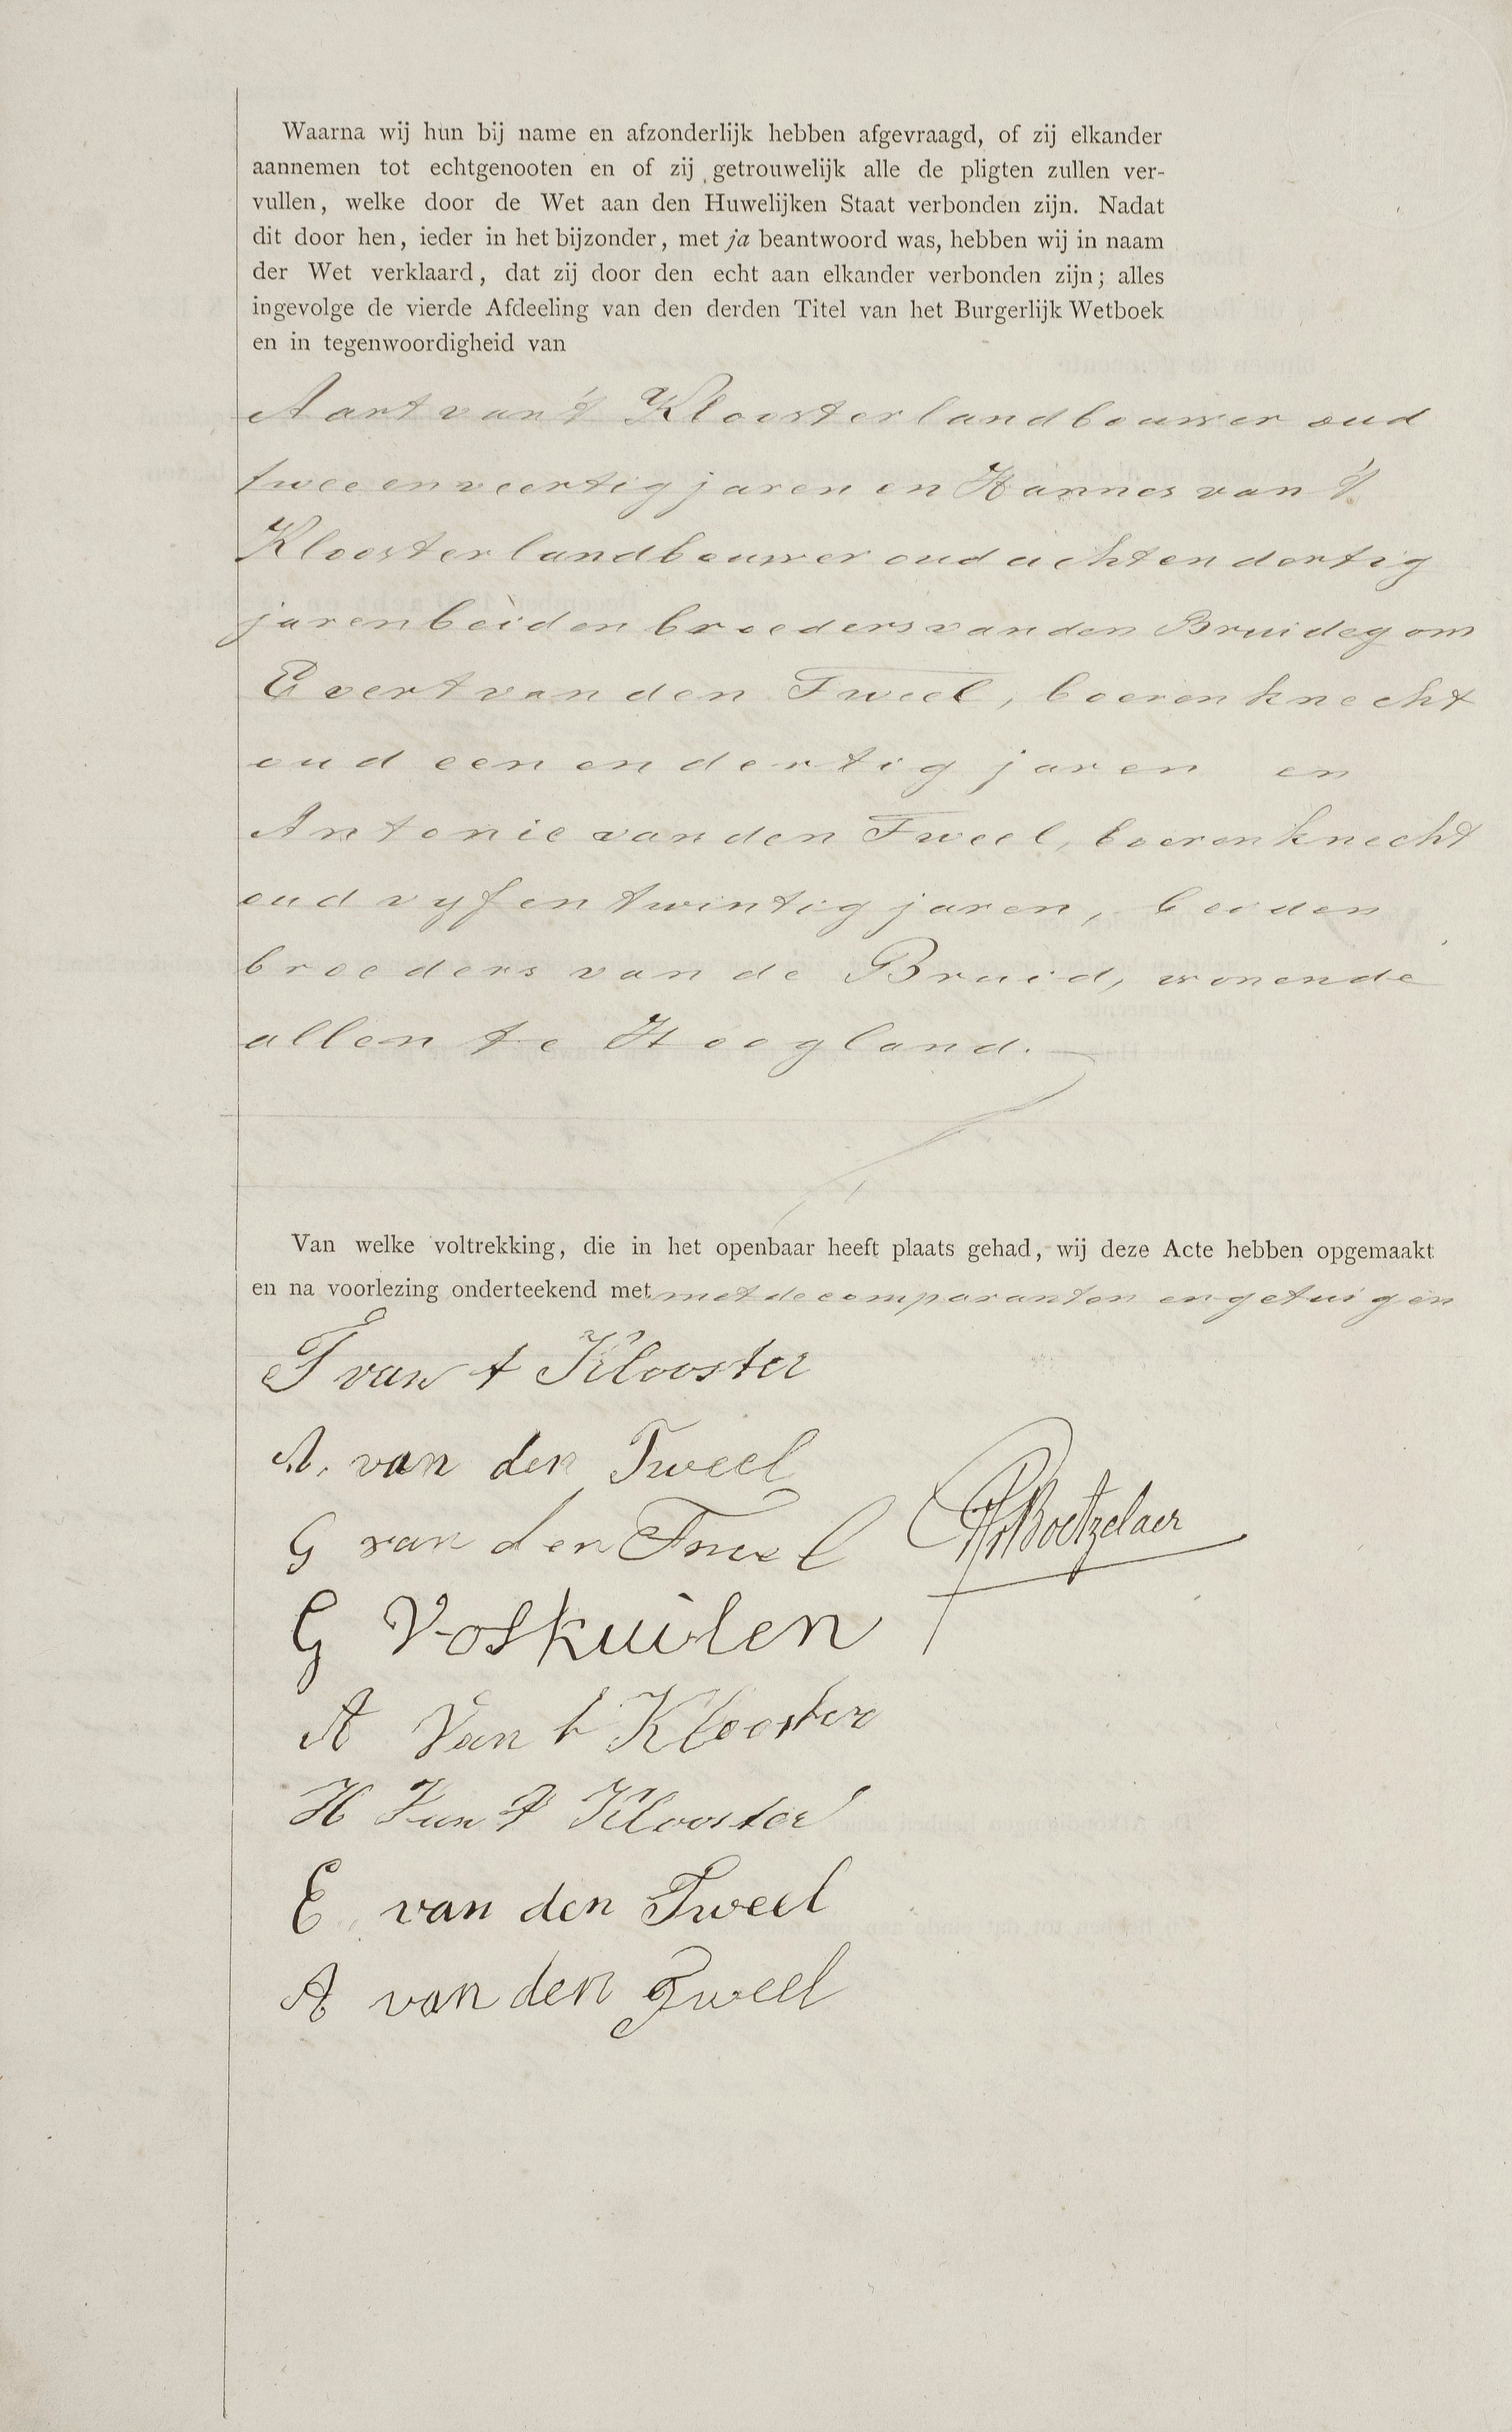 Waarna wij hun bij name en afzonderlijk hebben afgevraagd, of zij elkander
aannemen tot echtgenooten en of zij getrouwelijk alle de pligten zullen ver-
vullen, welke door de Wet aan den Huwelijken Staat verbonden zijn. Nadat
dit door hen, ieder in het bijzonder, met ja beantwoord was, hebben wij in naam
der Wet verklaard, dat zij door den echt aan elkander verbonden zijn; alles
ingevolge de vierde Afdeeling van den derden Titel van het Burgerlijk Wetboek
en in tegenwoordigheid van
Aart van 't Klooster landbouwer oud
twee en veertig jaren en Hannes van 't
Klooster landbouwer oud acht en dertig
jaren beiden broeders van den Bruidegom
Evert van den Tweel, boerenknecht
oud een en dertig jaren en
Antonie van den Tweel, boerenknecht
oud vyf en twintig jaren, beiden
broeders van de Bruid, wonende
allen te Hoogland.
Van welke voltrekking, die in het openbaar heeft plaats gehad, wij deze Acte hebben opgemaakt
en na voorlezing onderteekend met met de comparanten en getuigen
T van t Klooster
A. van den Tweel
G van den Tweel
Boetzelaer
G Voskuilen
A Van t Klooster
H Van t Klooster
E van den Tweel
A van den Tweel